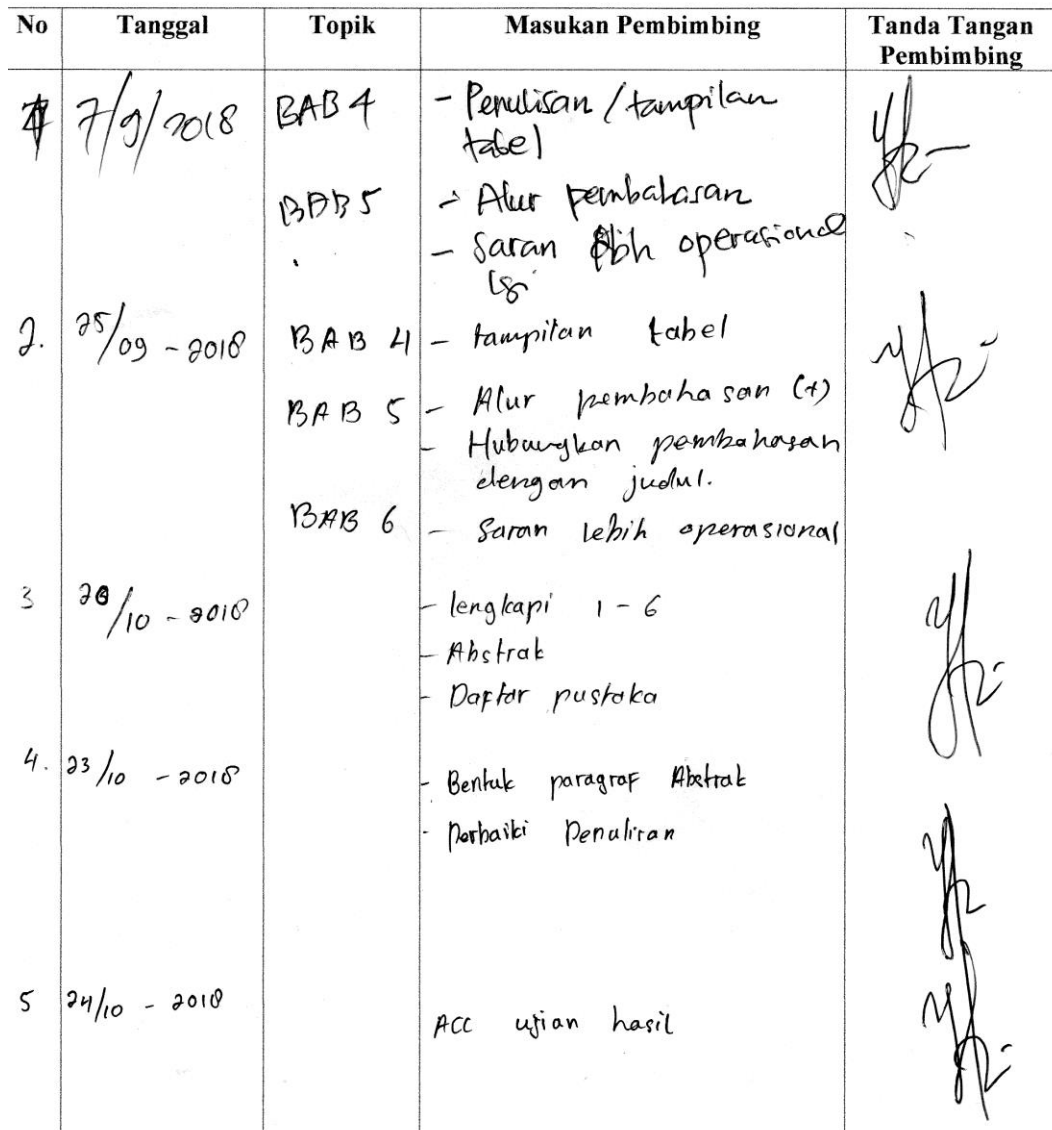 No Tanggal Topik Masukan Pembimbing Tanda Tangan Pembimbing
7/9/2018 BAB 4 - Penulisan / tampilan
tabel
BAB 5 - Alur pembahasan
- Saran operasional
2. 25/09 - 2018 BAB 4 - tampilan tabel
BAB 5 - Alur pembahasan (+)
- Hubungkan pembahasan
dengan judul.
BAB 6 - Saran lebih operasional
3 /10 - 2018 - lengkapi 1 - 6
- Abstrak
- Daftar pustaka
4. 23/10 - 2018 - Bentuk paragraf Abstrak
- Perbaiki Penulisan
5 24/10 - 2018 ACC ujian hasil